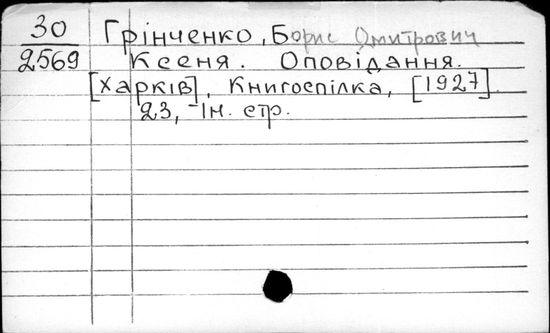 30
2569
Грінченко, Борис Дмитрович
Ксеня. Оповідання.
[Харків], Книгоспілка, [1927].
23, Ін. стр.